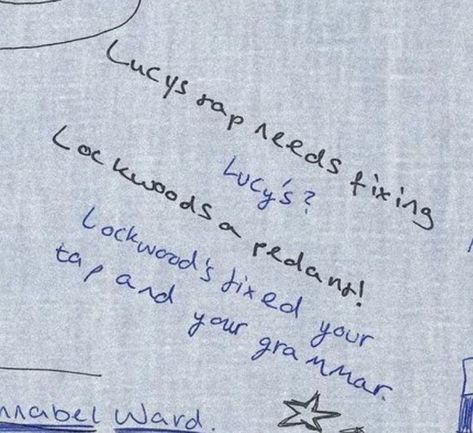 Lucys tap needs fixing
Lucy's?
Lockwoods a pedant!
Lockwood's fixed your
tap and your grammar.
nnabel Ward.